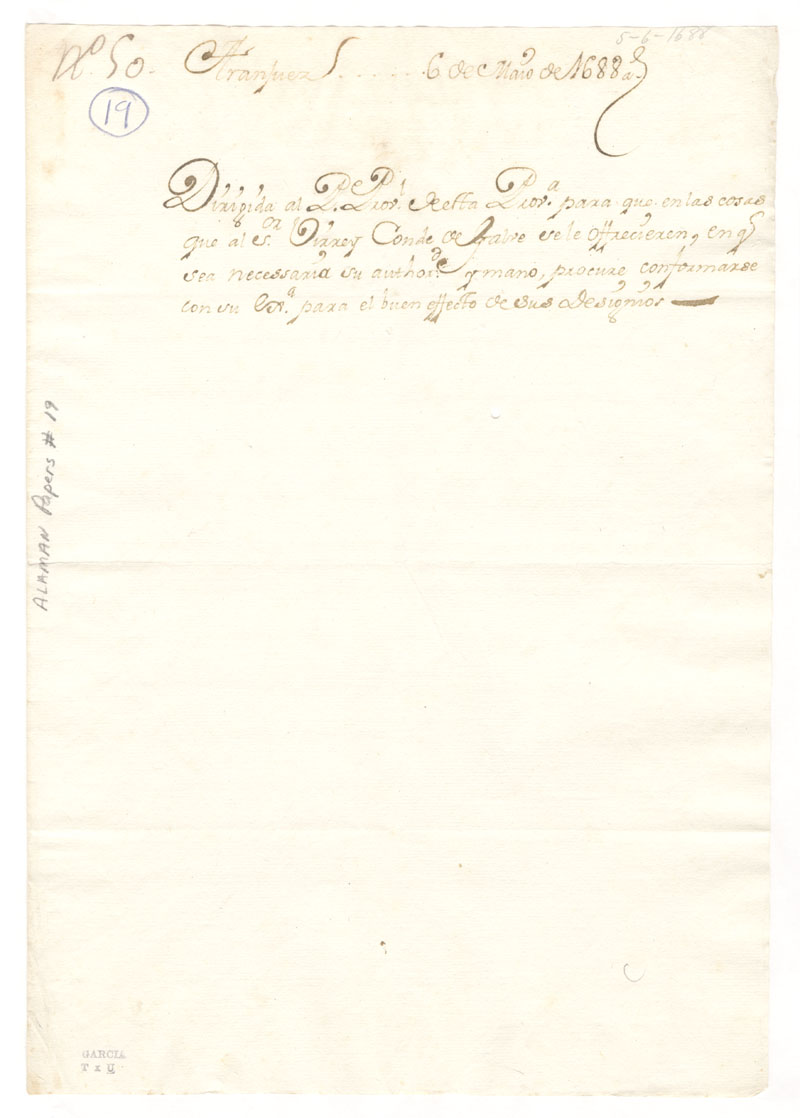 5-6-1688
Nº. 50. Aranjuez . . . . . . 6 de Maio de 1688 a.s
19
Dirigida al P.e Prov.l desta Prov.a para que en las cosas
que al S.or Virrey Conde de Galve se le offrecieren, en q.
sea necessaria su authori.de y mano, procure conformarse
con su Ex.a para el buen effecto de sus designios
ALAMAN Papers # 19
GARCIA
T x U